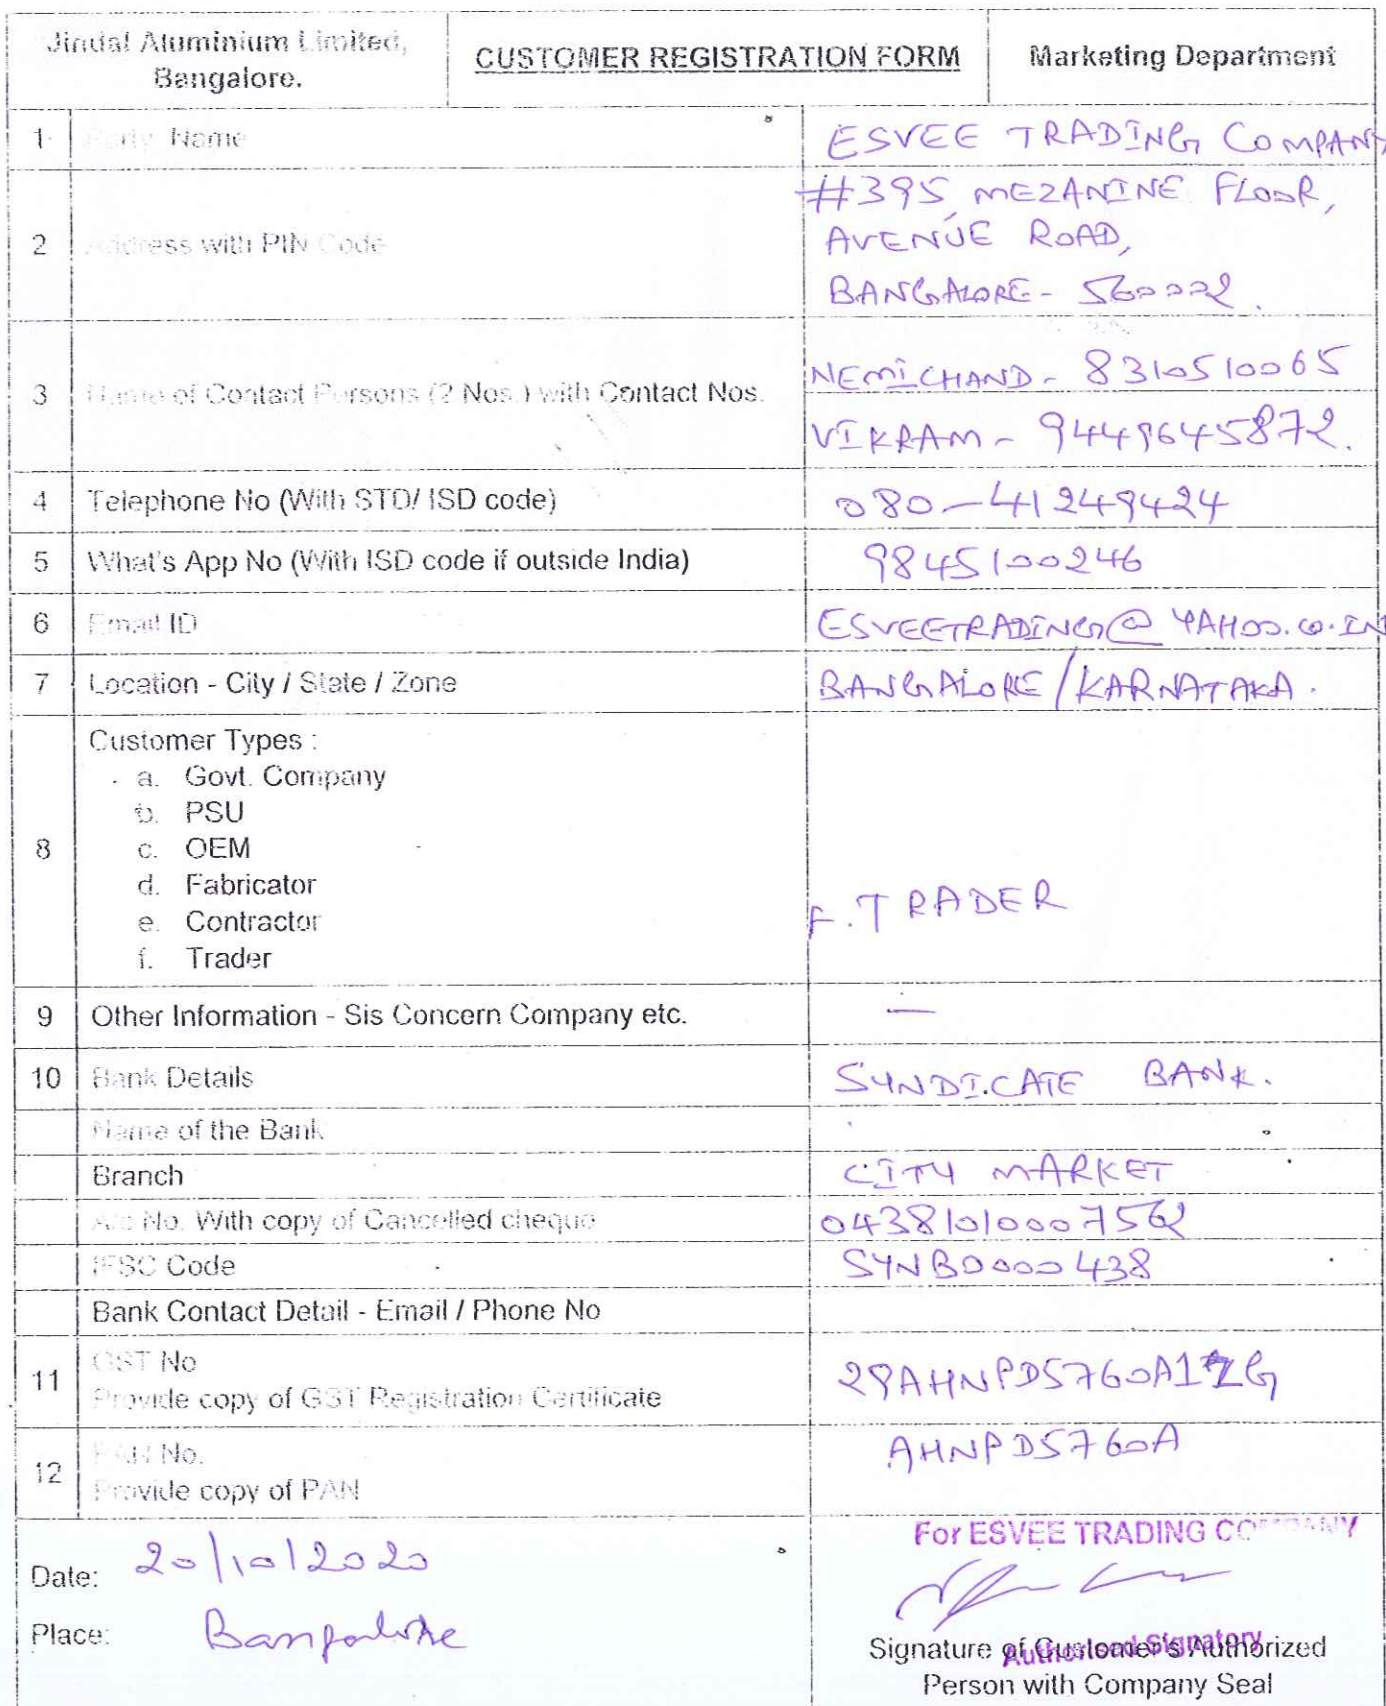 Jindal Aluminium Limited,
Bangalore.
CUSTOMER REGISTRATION FORM
Marketing Department
1 Party Name ESVEE TRADING COMPANY
2 Address with PIN Code #395, MEZANINE FLOOR,
AVENUE ROAD,
BANGALORE - 560002.
3 Name of Contact Persons (2 Nos.) with Contact Nos. NEMICHAND - 8310510065
VIKRAM - 9449645872.
4 Telephone No (With STD/ ISD code) 080-41249424
5 What's App No (With ISD code if outside India) 9845100246
6 Email ID ESVEETRADING@YAHOO.CO.IN
7 Location - City / State / Zone BANGALORE/KARNATAKA.
8 Customer Types :
a. Govt. Company
b. PSU
c. OEM
d. Fabricator
e. Contractor
f. Trader
F. TRADER
9 Other Information - Sis Concern Company etc. —
10 Bank Details SYNDICATE BANK.
Name of the Bank
Branch CITY MARKET
A/c No. With copy of Cancelled cheque 04381010007562
IFSC Code SYNB0000438
Bank Contact Detail - Email / Phone No
11 GST No 29AHNPD5760A1ZG
Provide copy of GST Registration Certificate
12 PAN No. AHNPD5760A
Provide copy of PAN
For ESVEE TRADING COMPANY
Date: 20/10/2020
Place: Bangalore
Authorised Signatory
Signature of Customer's Authorized
Person with Company Seal